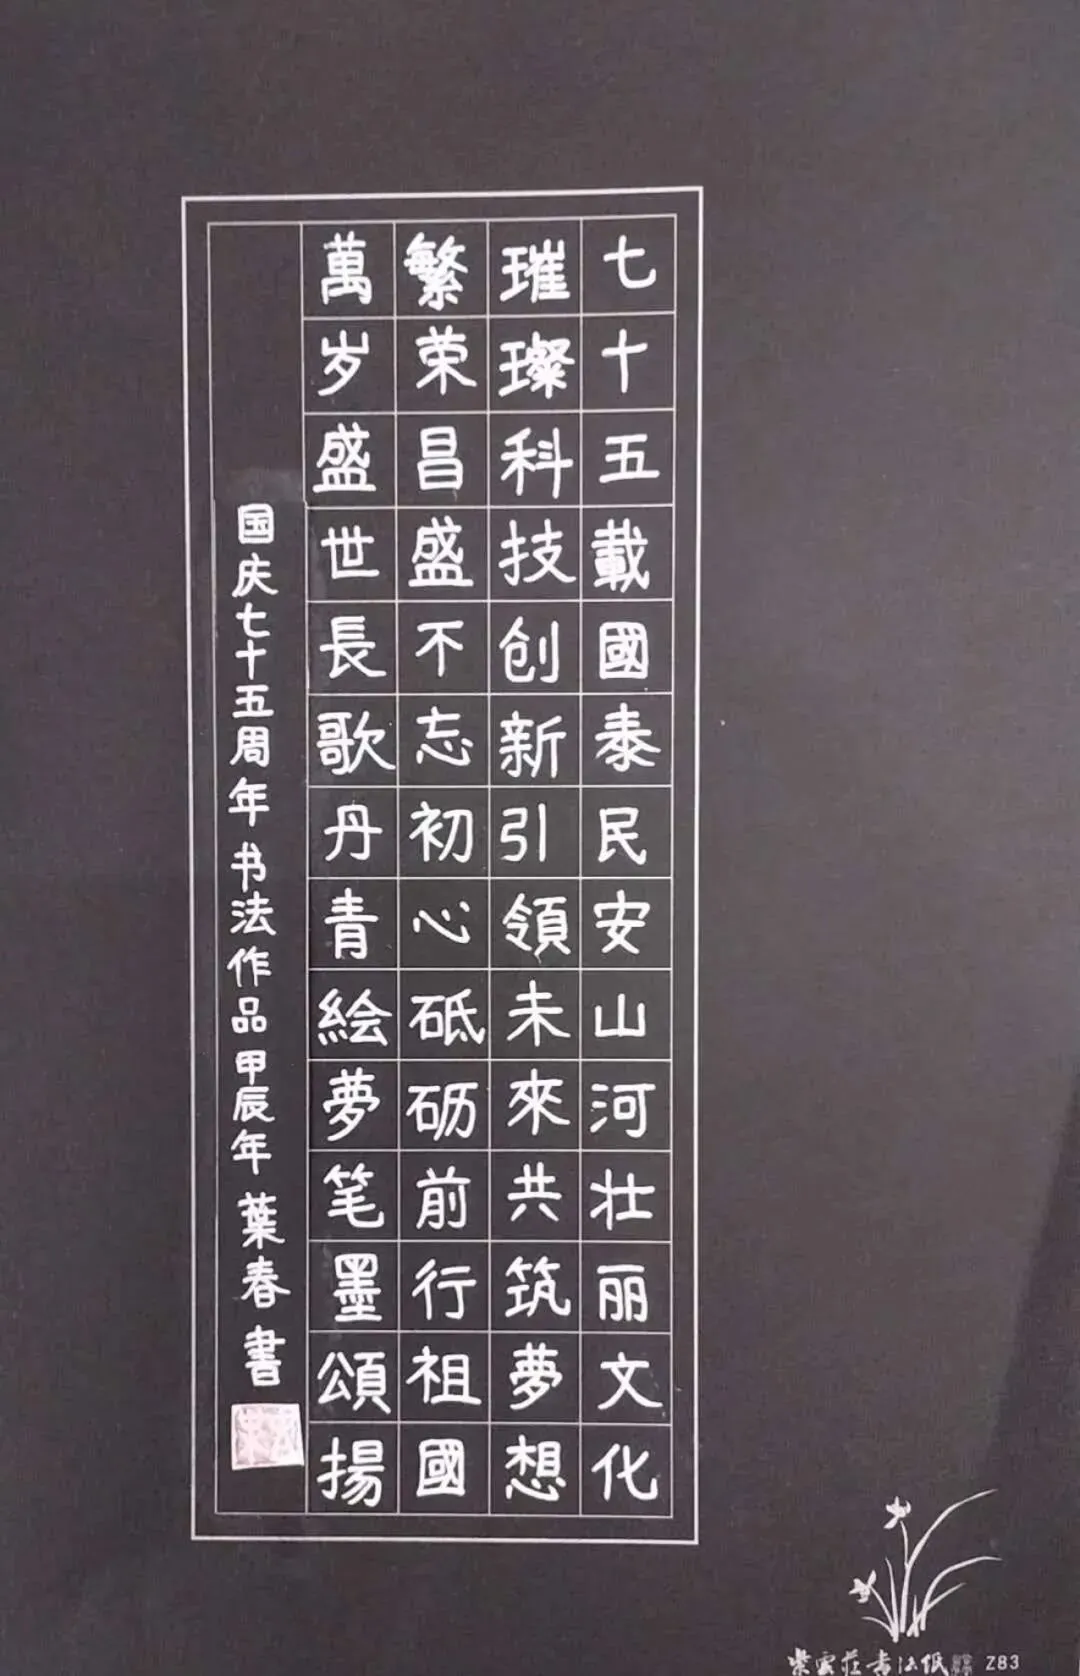 七十五載國泰民安山河壮丽文化
璀璨科技创新引領未來共筑夢想
繁荣昌盛不忘初心砥砺前行祖國
萬岁盛世長歌丹青絵夢笔墨頌揚
国庆七十五周年书法作品甲辰年葉春書
紫雲莊书法纸 Z83